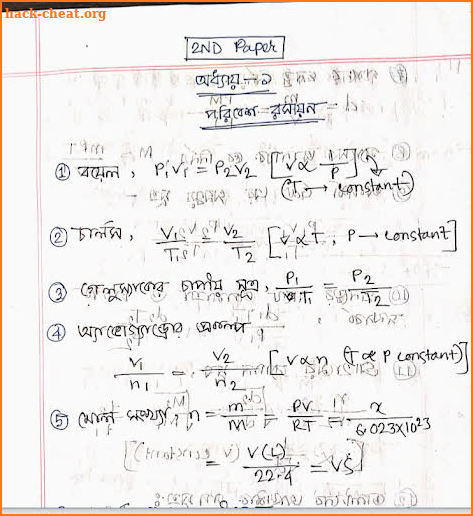 hack-cheat.org
2ND Paper
অধ্যায় - ১
পরিবেশ রসায়ন
① বয়েল, P₁V₁ = P₂V₂ [V ∝ 1/P]
(T → constant)
② চার্লস, V₁/T₁ = V₂/T₂ [V ∝ T, P → constant]
③ গেলুস্যাকের চাপীয় সূত্র, P₁/T₁ = P₂/T₂
④ অ্যাভোগ্যাড্রোর প্রকল্প
V₁/n₁ = V₂/n₂ [V ∝ n (T ∝ P constant)]
⑤ মোল সংখ্যা, n = m/M = PV/RT = x/6.023×10²³
= V(L)/22.4 = VS
hack-cheat.org